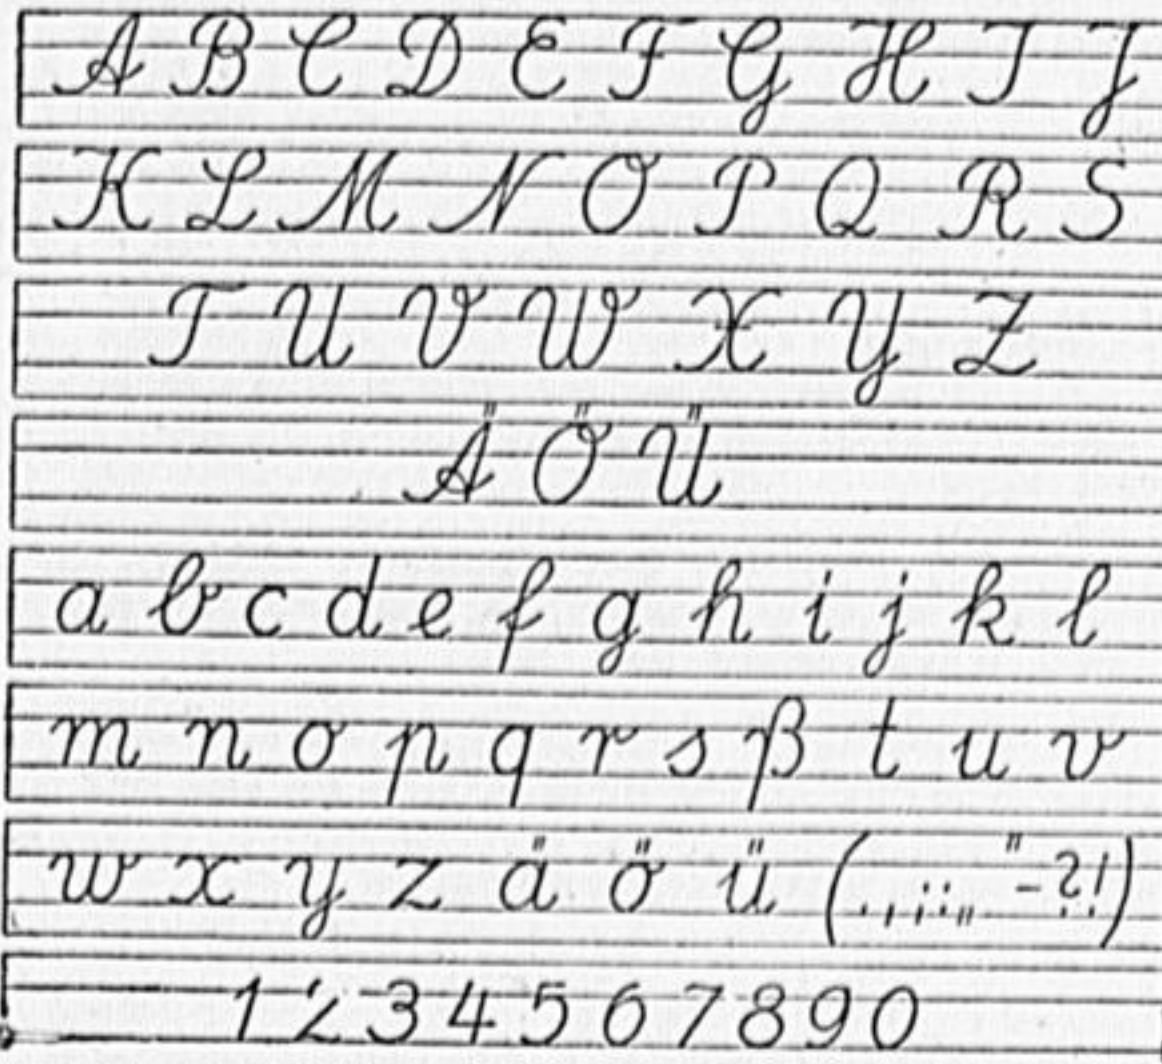 A B C D E F G H I J
K L M N O P Q R S
T U V W X Y Z
Ä Ö Ü
a b c d e f g h i j k l
m n o p q r s ß t u v
w x y z ä ö ü ( . , : ; „ " - ? ! )
1 2 3 4 5 6 7 8 9 0